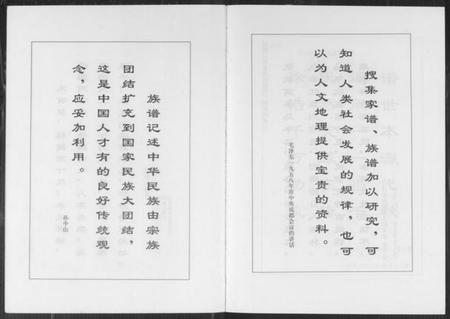 搜集家谱、族谱加以研究，可
知道人类社会发展的规律，也可
以为人文地理提供宝贵的资料。
毛泽东一九五八年在中央成都会议的讲话
族谱记述中华民族由宗族
团结扩充到国家民族大团结，
这是中国人才有的良好传统观
念，应妥加利用。
孙中山